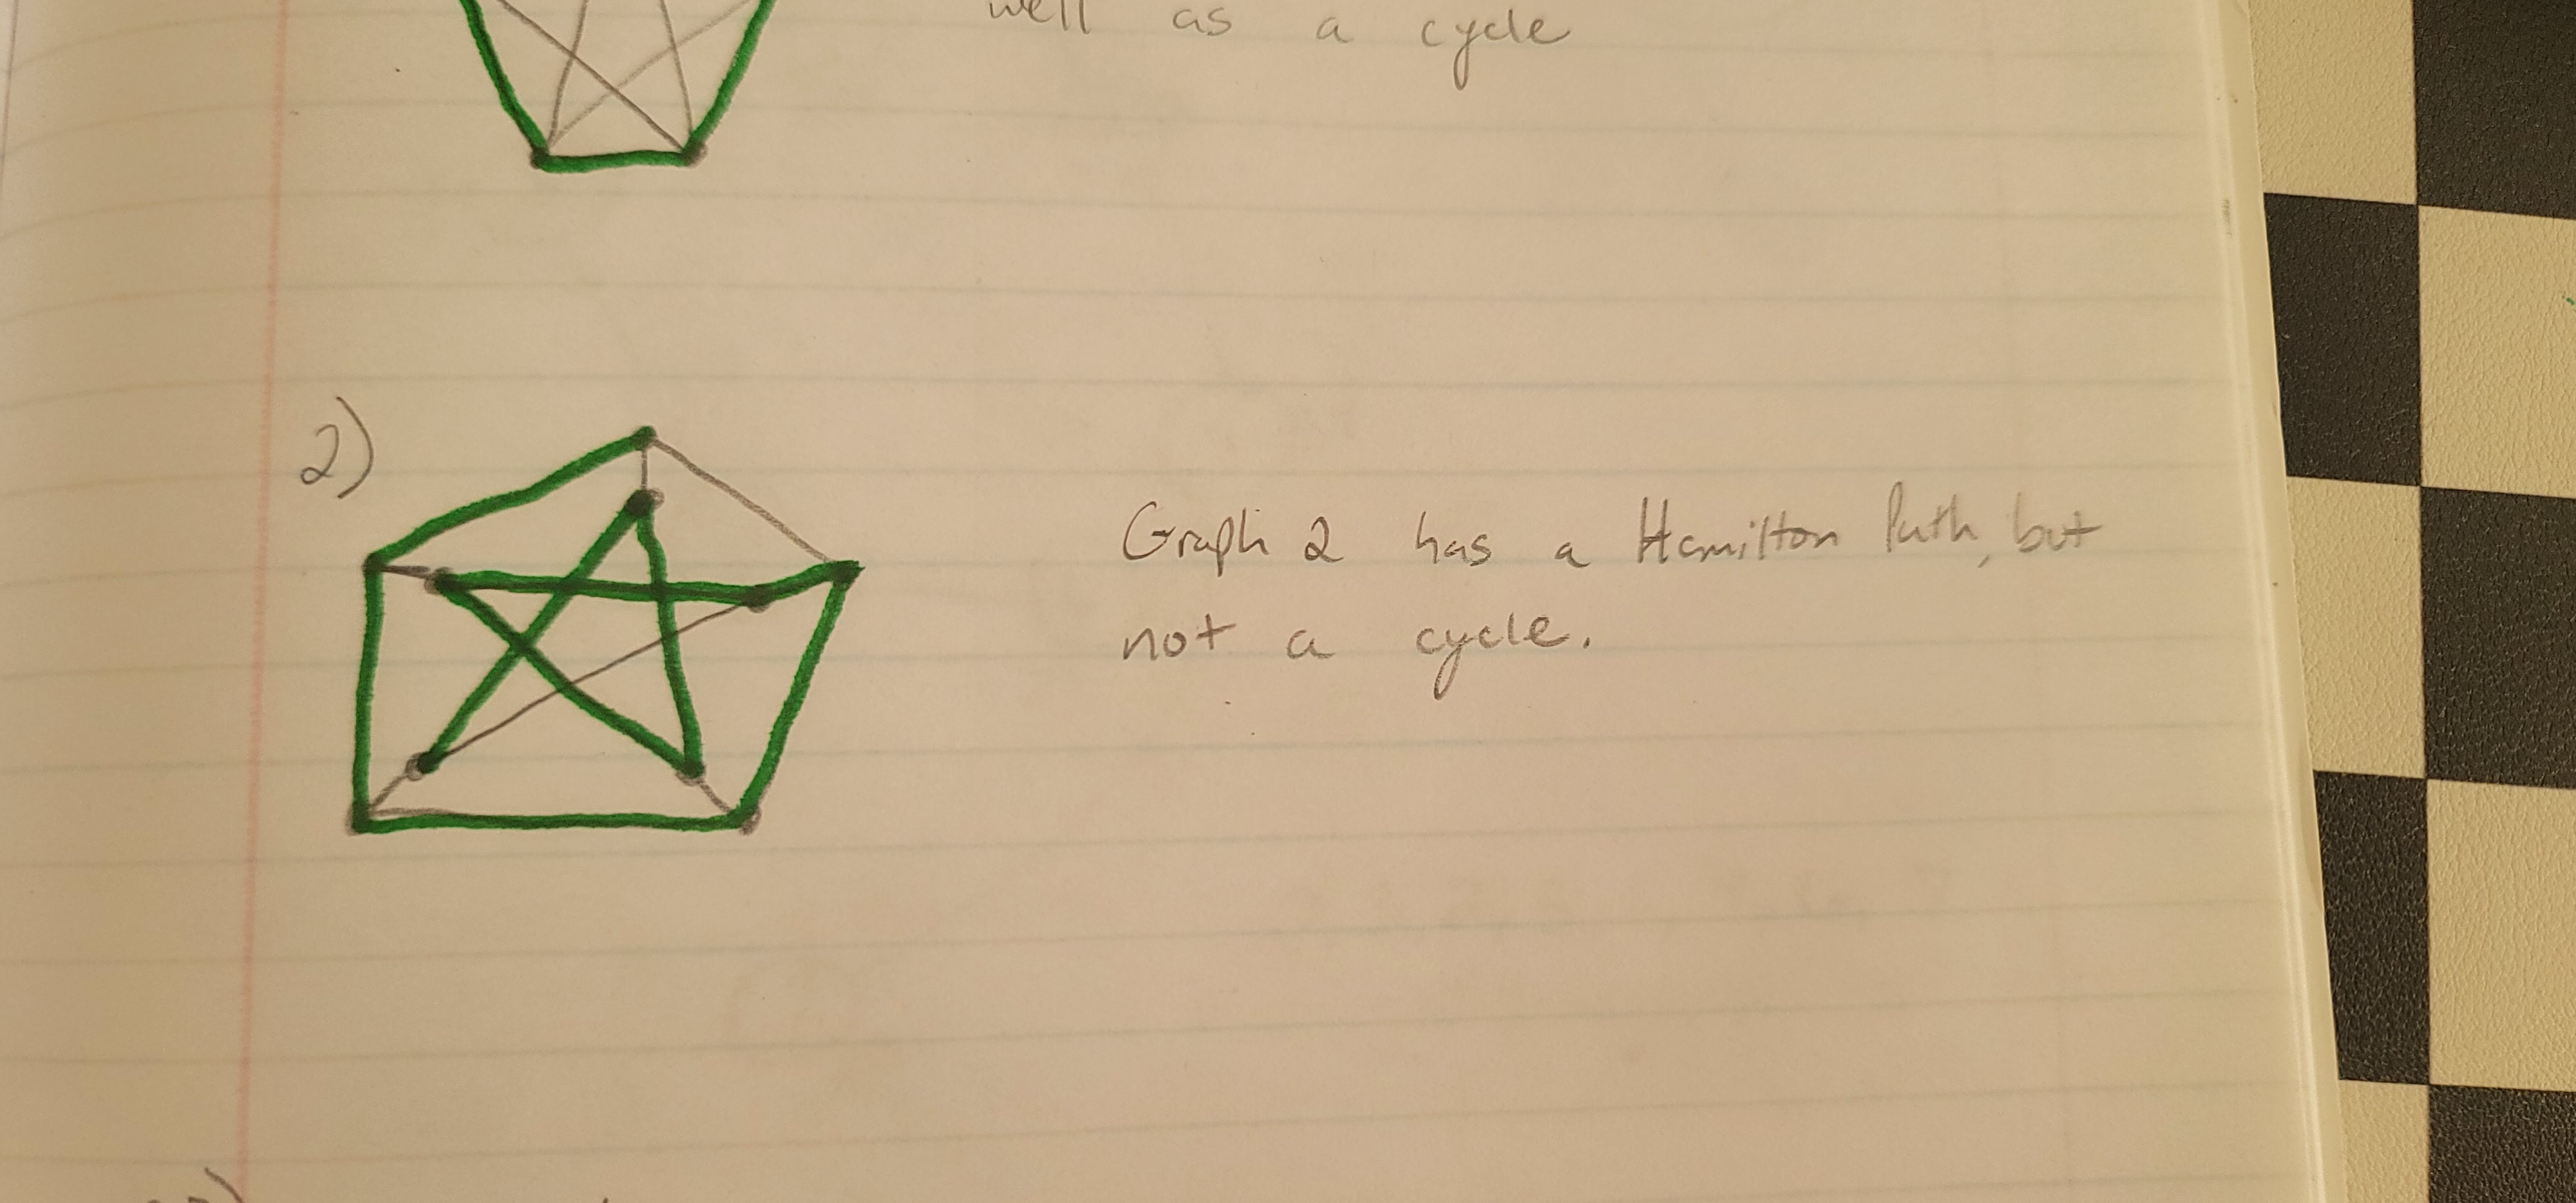 well as a cycle
2)
Graph 2 has a Hamilton Path, but
not a cycle.